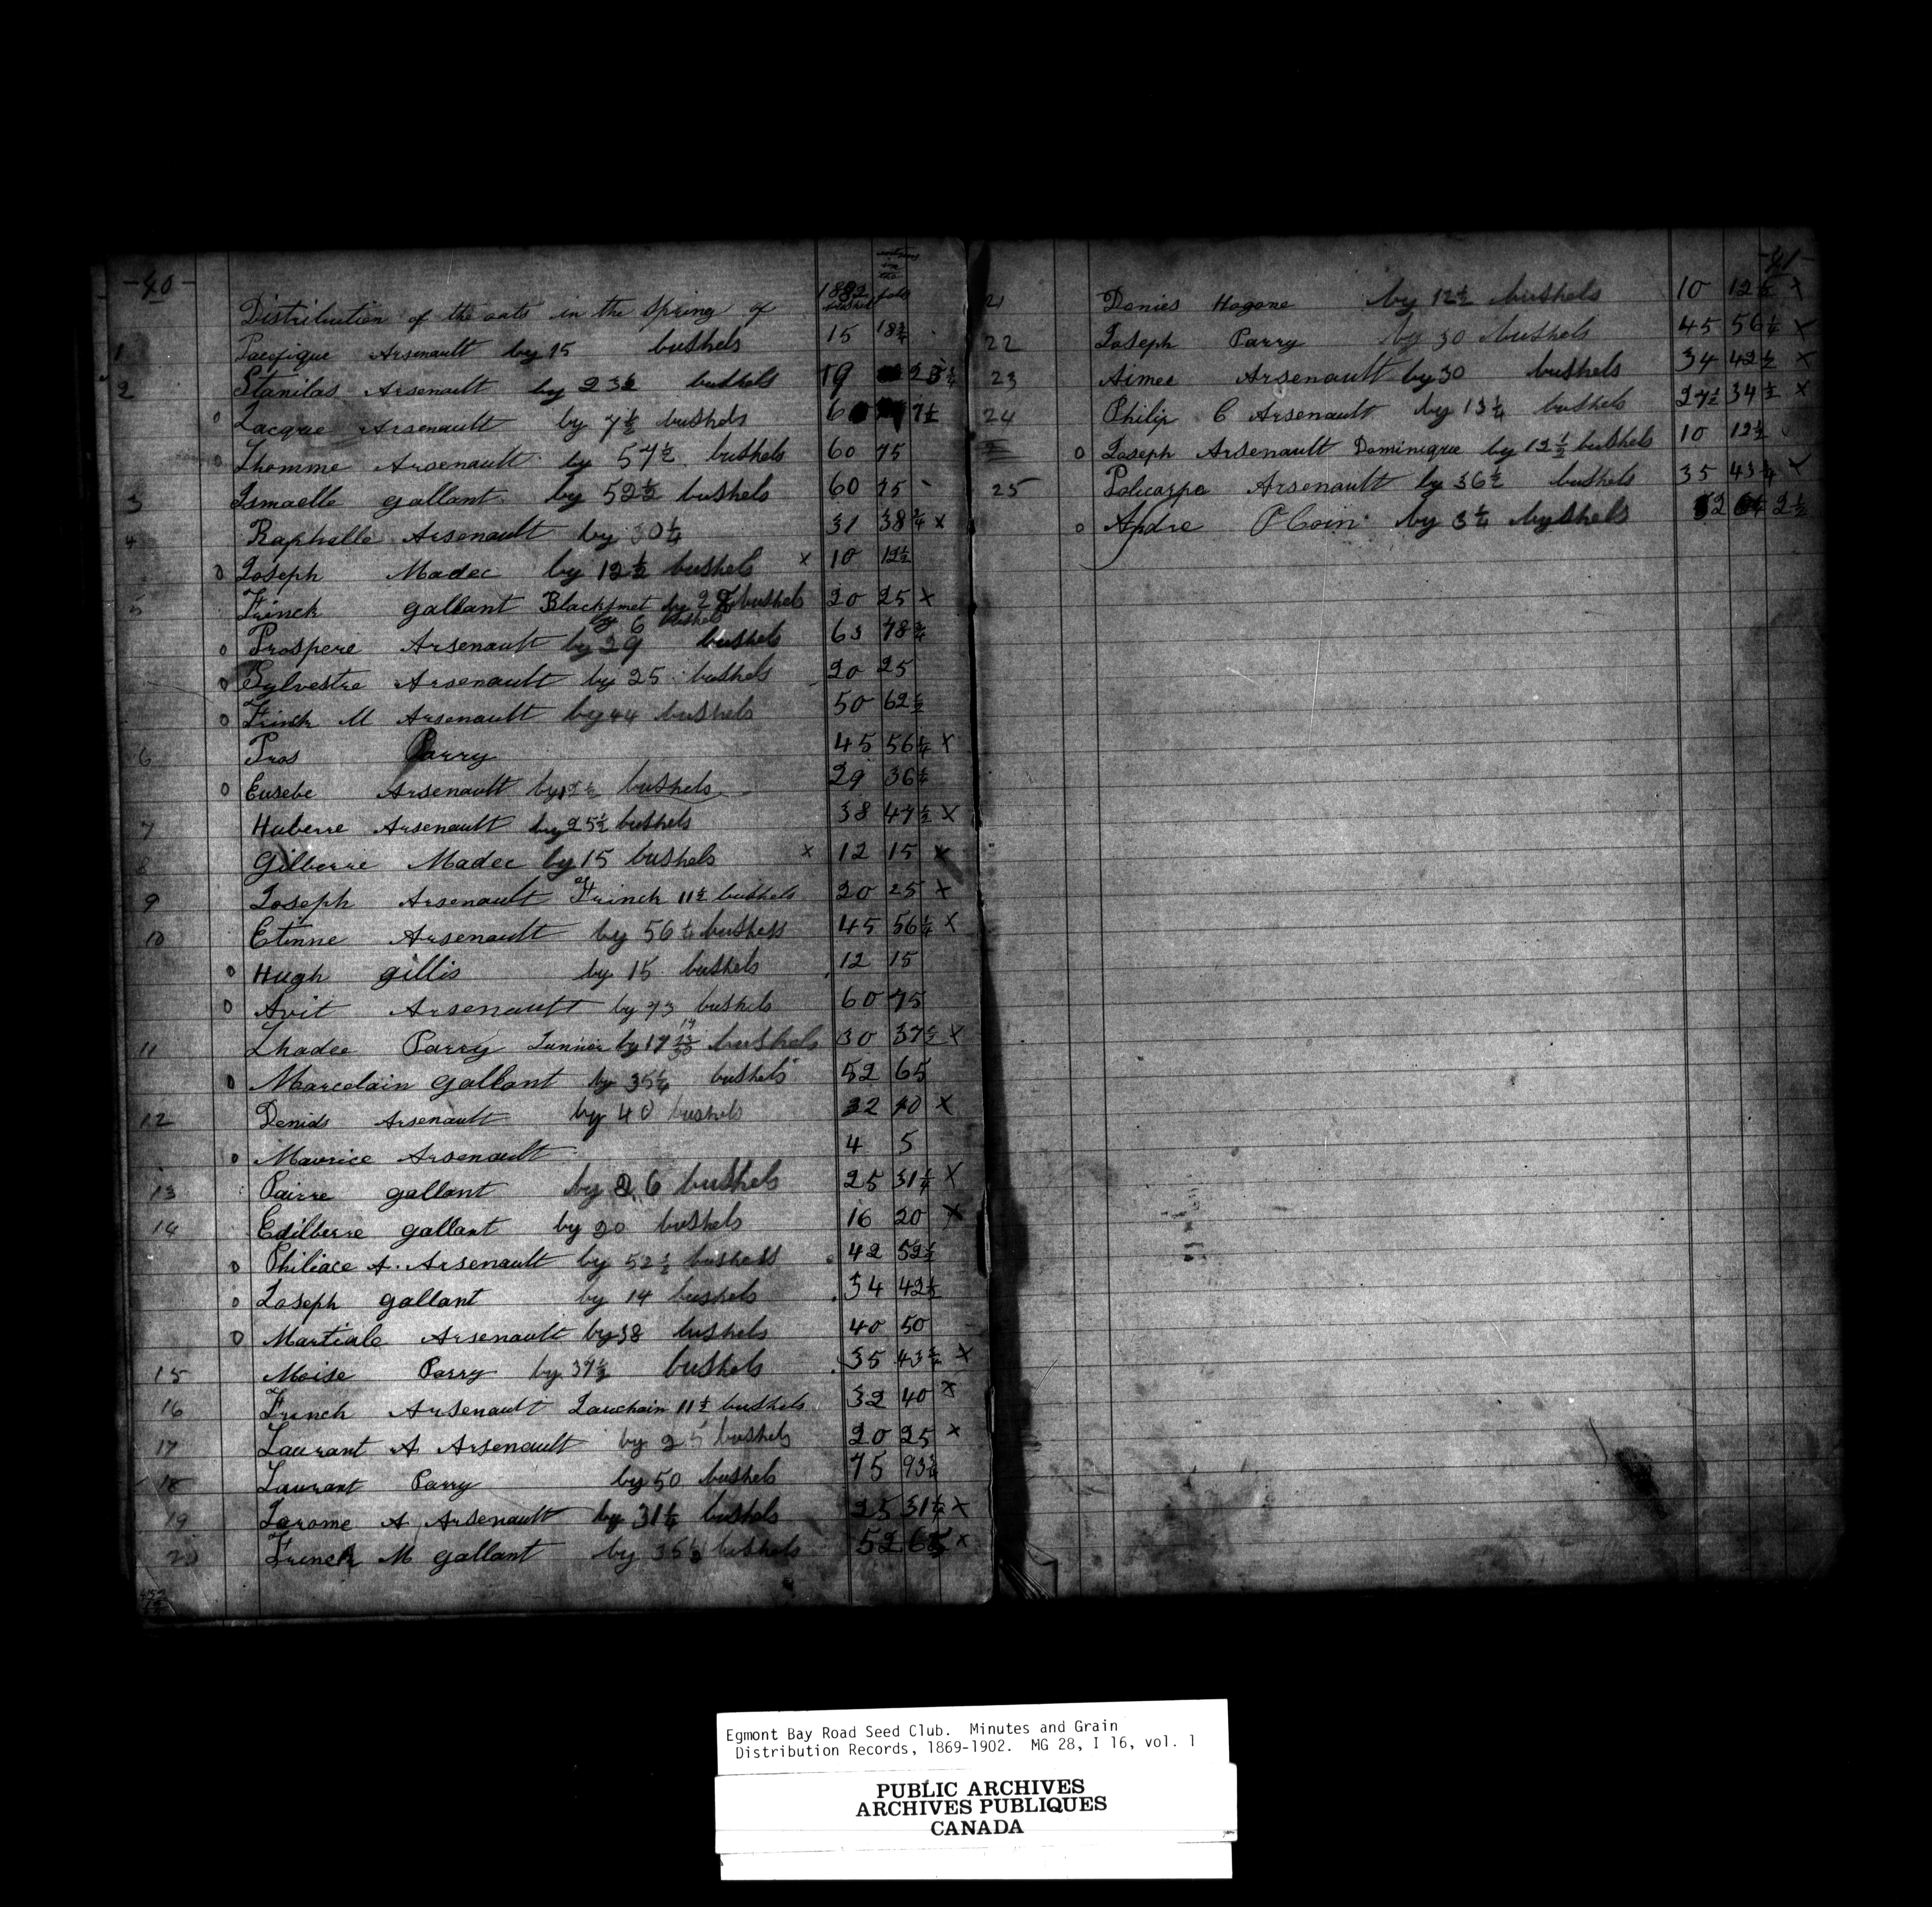 -40-
Distribution of the oats in the Spring of 1882 bushel
1 Pacifique Arsenault by 15 bushels 15 18¾
2 Stanilas Arsenault by 23½ bushels 19 23¾
o Jacque Arsenault by 7½ bushels 6 7½
o Thomme Arsenault by 57½ bushels 60 75
3 Ismaelle gallant by 52½ bushels 60 75
4 Raphelle Arsenault by 30¼ 31 38¾ x
o Joseph Madec by 12½ bushels x 10 12½
5 Frinck gallant Blacksmet by bushels 20 25 x
by 6 bushels
o Prospere Arsenault by 29 bushels 63 78¾
o Sylvestre Arsenault by 25 bushels 20 25
o Frinck M Arsenault by 44 bushels 50 62½
6 Pros Parry 45 56¼ x
o Eusebe Arsenault by bushels 29 36¼
7 Huberre Arsenault by 25½ bushels 38 47½ x
8 Gilberre Madec by 15 bushels x 12 15 x
9 Joseph Arsenault Frinck 11½ bushels 20 25 x
10 Etinne Arsenault by 56¼ bushess 45 56¼ x
o Hugh gillis by 15 bushels 12 15
o Avit Arsenault by 73 bushels 60 75
11 Thadee Parry Junnior by 17 bushels 30 37½ x
o Marcelain gallant by 35¼ bushels 52 65
12 Denids Arsenault by 40 bushels 32 40 x
o Maurice Arsenault 4 5
13 Pairre gallant by 26 bushels 25 31¼ x
14 Edilberre gallant by 20 bushels 16 20 x
o Philiace A. Arsenault by 52½ bushess 42 52½
o Joseph gallant by 14 bushels 34 42½
o Martiale Arsenault by 38 bushels 40 50
15 Moise Parry by 37½ bushels 35 43¾ x
16 Frinck Arsenault Lauchain 11½ bushels 32 40 x
17 Laurant A Arsenault by 25 bushels 20 25 x
18 Laurant Parry by 50 bushels 75 93¾
19 Jarome A Arsenault by 31¼ bushels 25 31¼ x
20 Frinck M gallant by bushels 52 65 x
-41-
21 Danies Hogane by 12½ bushels 10 12½ x
22 Joseph Parry by 30 bushels 45 56¼ x
23 Aimee Arsenault by 30 bushels 34 42½ x
24 Philip C Arsenault by 13¼ bushels 27½ 34½ x
o Joseph Arsenault Dominique by 12½ bushels 10 12½
25 Policarpe Arsenault by 36½ bushels 35 43¾ x
o Andre PCoin by 3¼ byshels 2 2½
Egmont Bay Road Seed Club. Minutes and Grain
Distribution Records, 1869-1902. MG 28, I 16, vol. 1
PUBLIC ARCHIVES
ARCHIVES PUBLIQUES
CANADA